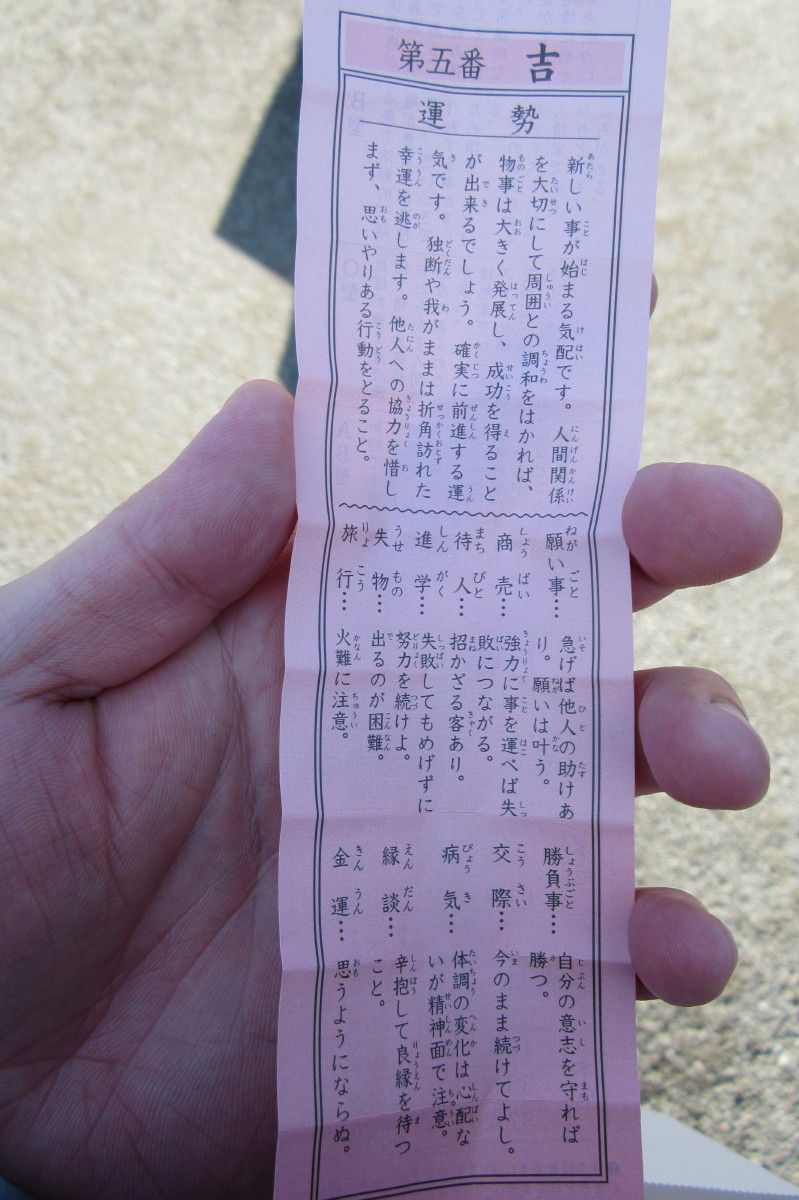 第五番 吉
運勢
新しい事が始まる気配です。人間関係
を大切にして周囲との調和をはかれば、
物事は大きく発展し、成功を得ること
が出来るでしょう。確実に前進する運
気です。独断や我がままは折角訪れた
幸運を逃します。他人への協力を惜し
まず、思いやりある行動をとること。
願い事…急げば他人の助けあ
り。願いは叶う。
商売…強力に事を運べば失
敗につながる。
待人…招かざる客あり。
進学…失敗してもめげずに
努力を続けよ。
失物…出るのが困難。
旅行…火難に注意。
勝負事…自分の意志を守れば
勝つ。
交際…今のまま続けてよし。
病気…体調の変化は心配な
いが精神面で注意。
縁談…辛抱して良縁を待つ
こと。
金運…思うようにならぬ。
B型
O型
AB型